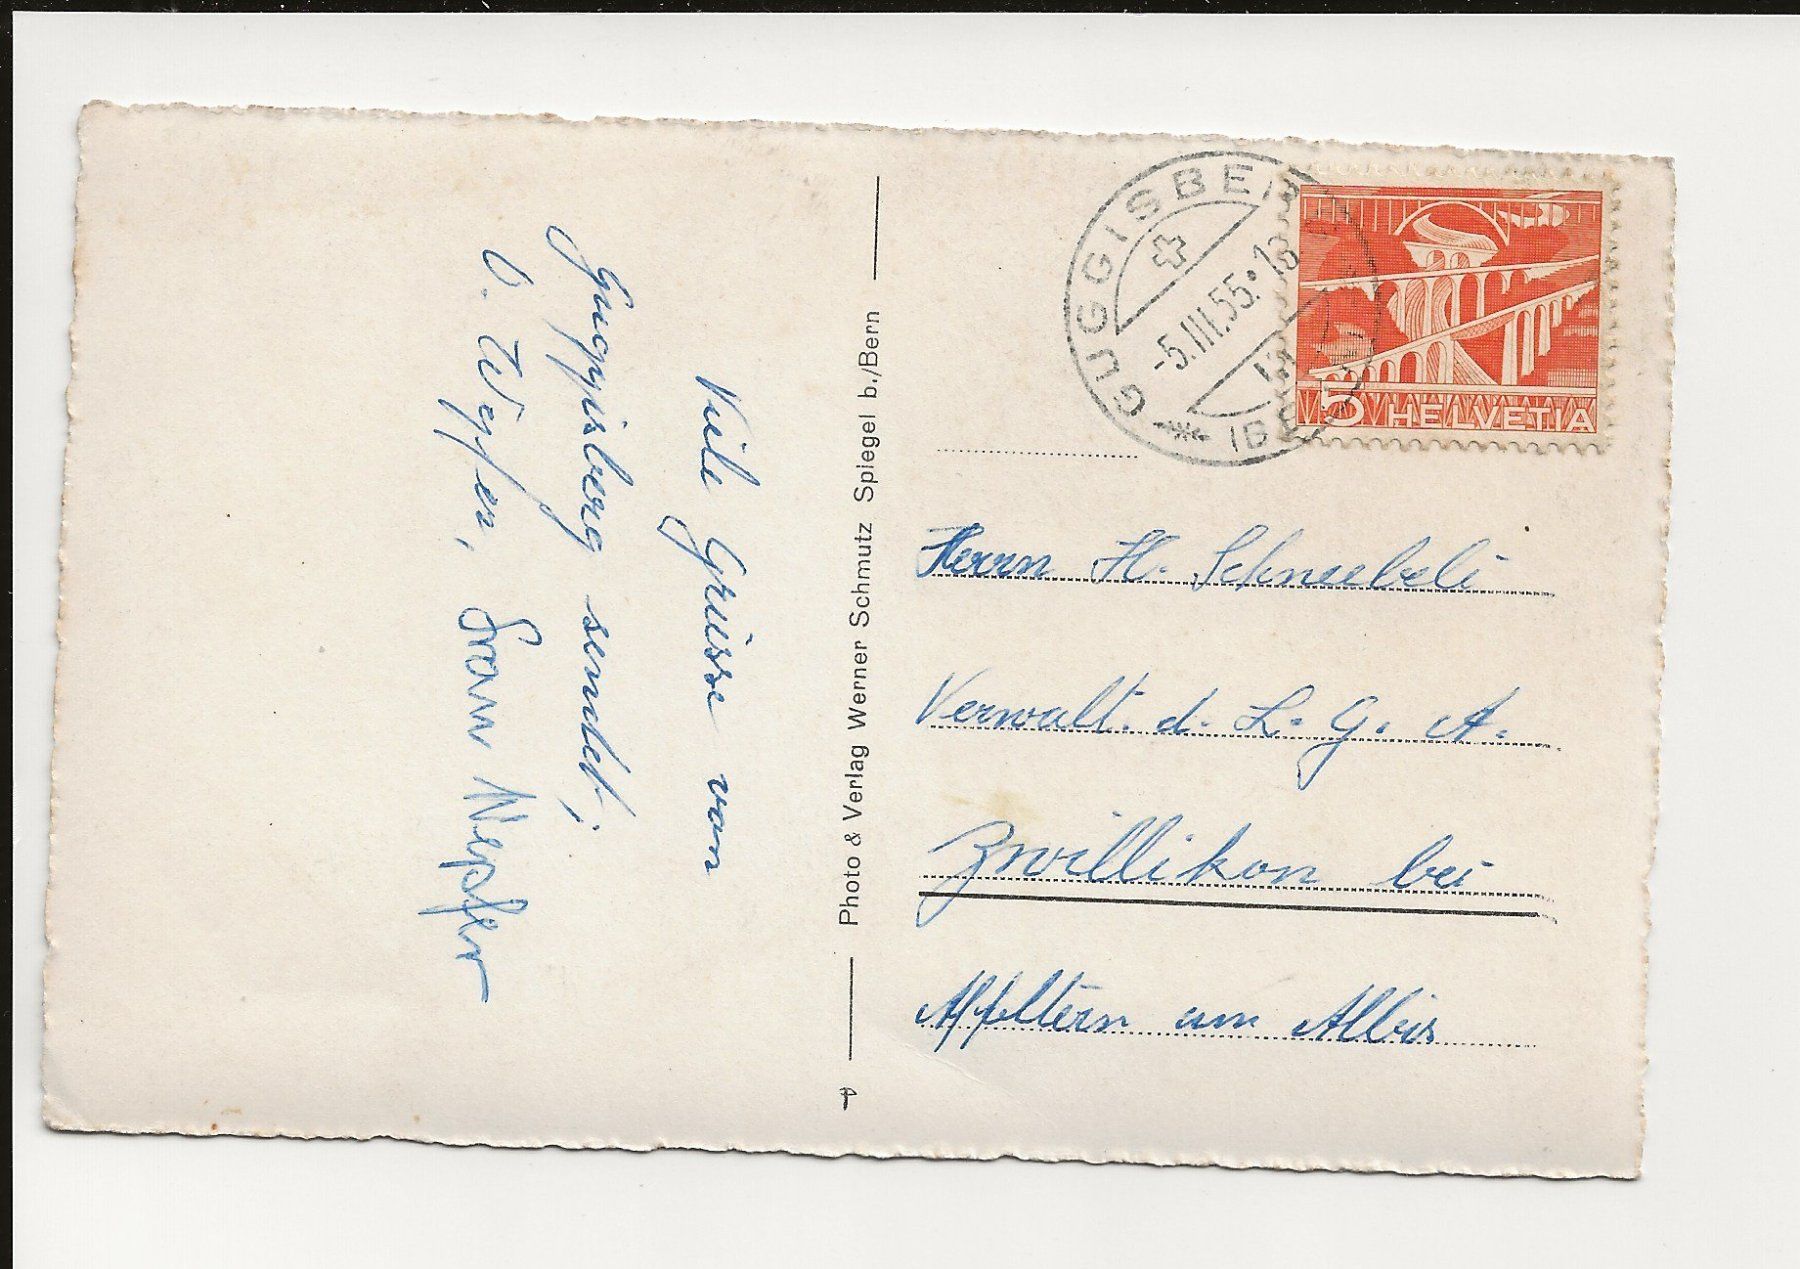 Viele Grüsse von
Guggisberg sendet;
O.
Photo & Verlag Werner Schmutz Spiegel b./Bern
GUGGISBERG
-5.III.55.-18
(BERN)
5 HELVETIA
Herrn H. Schneebeli
Verwalt. d. L. G. A.
Zwillikon bei
Affeltern am Albis